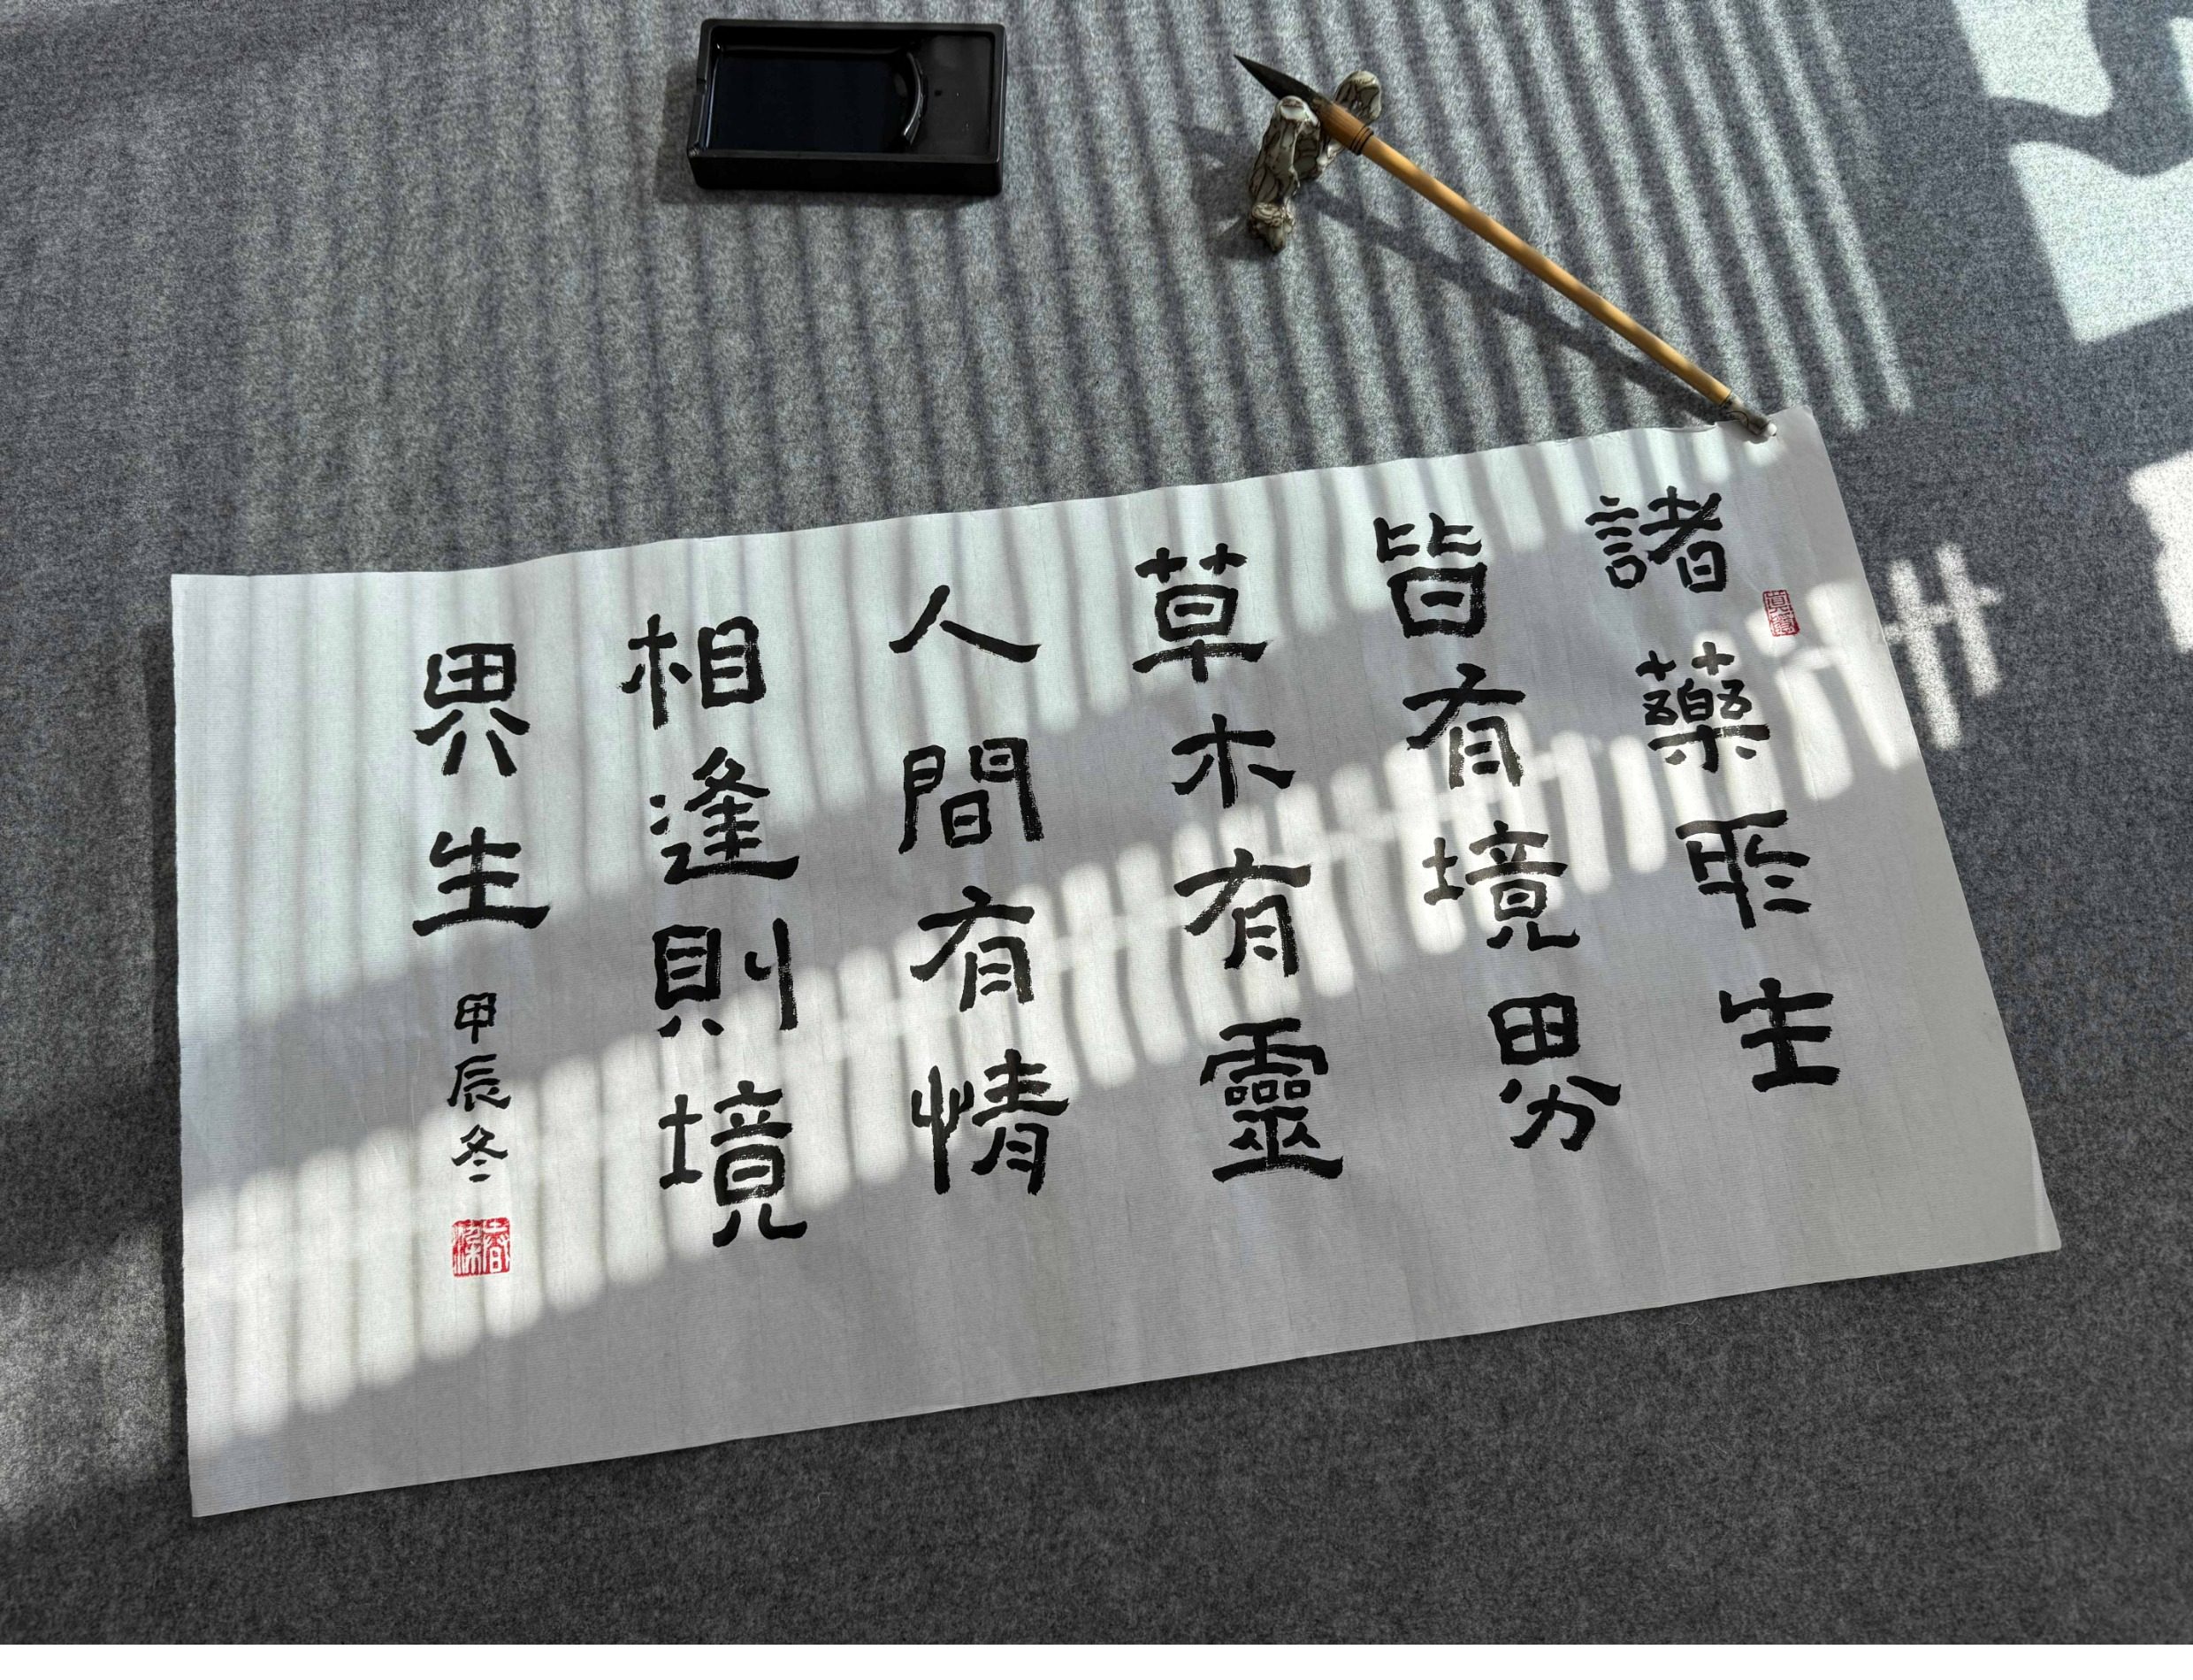 諸藥所生
皆有境界
草木有靈
人間有情
相逢則境
界生
甲辰冬